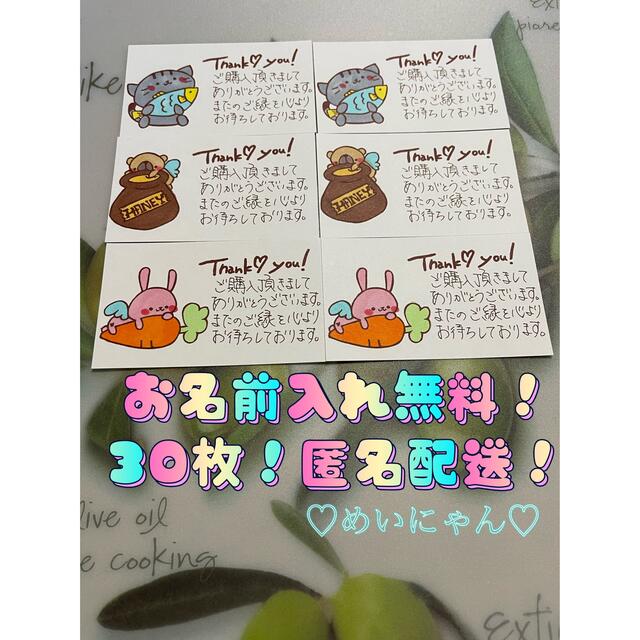 Exti
piare
ike
Thank♡you!
ご購入頂きまして
ありがとうございます。
またのご縁を心より
お待ちしております。
Thank♡you!
ご購入頂きまして
ありがとうございます。
またのご縁を心より
お待ちしております。
HONEY
Thank♡you!
ご購入頂きまして
ありがとうございます。
またのご縁を心より
お待ちしております。
HONEY
Thank♡you!
ご購入頂きまして
ありがとうございます。
またのご縁を心より
お待ちしております。
Thank♡you!
ご購入頂きまして
ありがとうございます。
またのご縁を心より
お待ちしております。
Thank♡you!
ご購入頂きまして
ありがとうございます。
またのご縁を心より
お待ちしております。
お名前入れ無料！
30枚！匿名配送！
♡めいにゃん♡
live oil
e cooking
extu